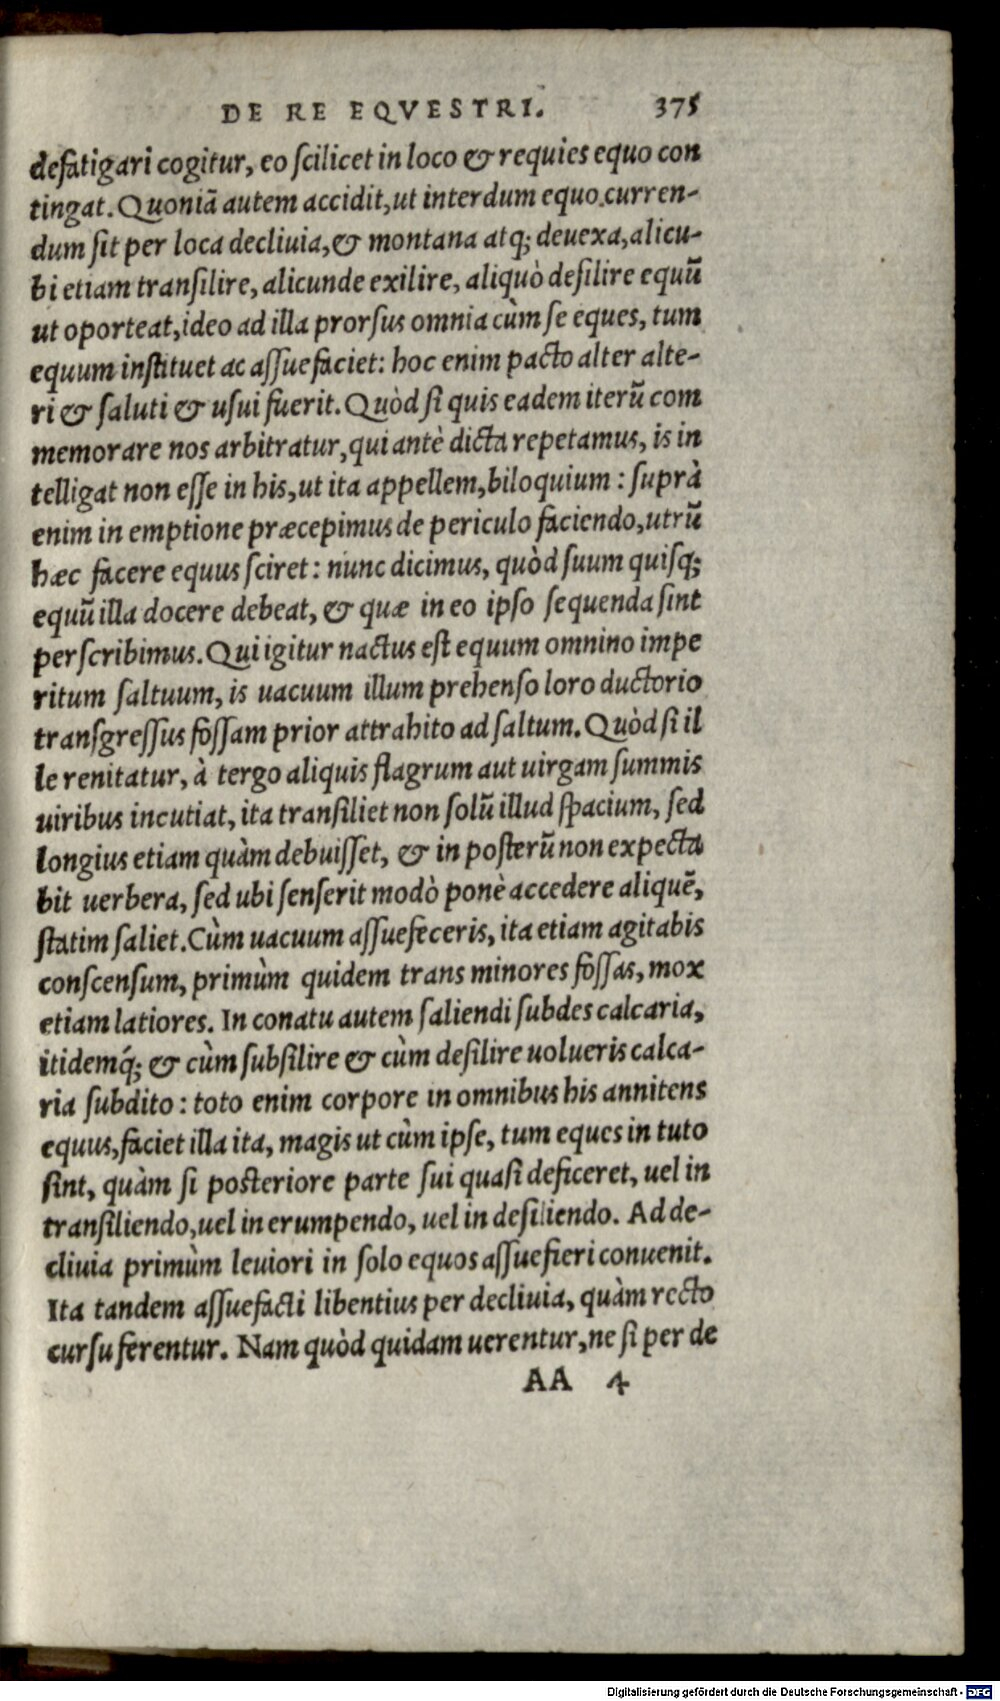 DE RE EQVESTRI. 375
defatigari cogitur, eo ſcilicet in loco & requies equo con
tingat. Quoniã autem accidit, ut interdum equo curren-
dum ſit per loca decliuia, & montana atq; deuexa, alicu-
bi etiam tranſilire, alicunde exilire, aliquò deſilire equũ
ut oporteat, ideo ad illa prorſus omnia cùm ſe eques, tum
equum inſtituet ac aſſuefaciet: hoc enim pacto alter alte-
ri & ſaluti & uſui fuerit. Quòd ſi quis eadem iterũ com
memorare nos arbitratur, qui antè dicta repetamus, is in
telligat non eſſe in his, ut ita appellem, biloquium: ſuprà
enim in emptione præcepimus de periculo faciendo, utrũ
hæc facere equus ſciret: nunc dicimus, quòd ſuum quiſq;
equũ illa docere debeat, & quæ in eo ipſo ſequenda ſint
perſcribimus. Qui igitur nactus eſt equum omnino impe
ritum ſaltuum, is uacuum illum prehenſo loro ductorio
tranſgreſſus foſſam prior attrahito ad ſaltum. Quòd ſi il
le renitatur, à tergo aliquis flagrum aut uirgam ſummis
uiribus incutiat, ita tranſiliet non ſolũ illud ſpacium, ſed
longius etiam quàm debuiſſet, & in poſterũ non expecta
bit uerbera, ſed ubi ſenſerit modò ponè accedere aliquẽ,
ſtatim ſaliet. Cùm uacuum aſſuefeceris, ita etiam agitabis
conſcenſum, primùm quidem trans minores foſſas, mox
etiam latiores. In conatu autem ſaliendi ſubdes calcaria,
itidemq́; & cùm ſubſilire & cùm deſilire uolueris calca-
ria ſubdito: toto enim corpore in omnibus his annitens
equus, faciet illa ita, magis ut cùm ipſe, tum eques in tuto
ſint, quàm ſi poſteriore parte ſui quaſi deficeret, uel in
tranſiliendo, uel in erumpendo, uel in deſiliendo. Ad de-
cliuia primùm leuiori in ſolo equos aſſuefieri conuenit.
Ita tandem aſſuefacti libentius per decliuia, quàm recto
curſu ferentur. Nam quòd quidam uerentur, ne ſi per de
AA 4
Digitalisierung gefördert durch die Deutsche Forschungsgemeinschaft - DFG